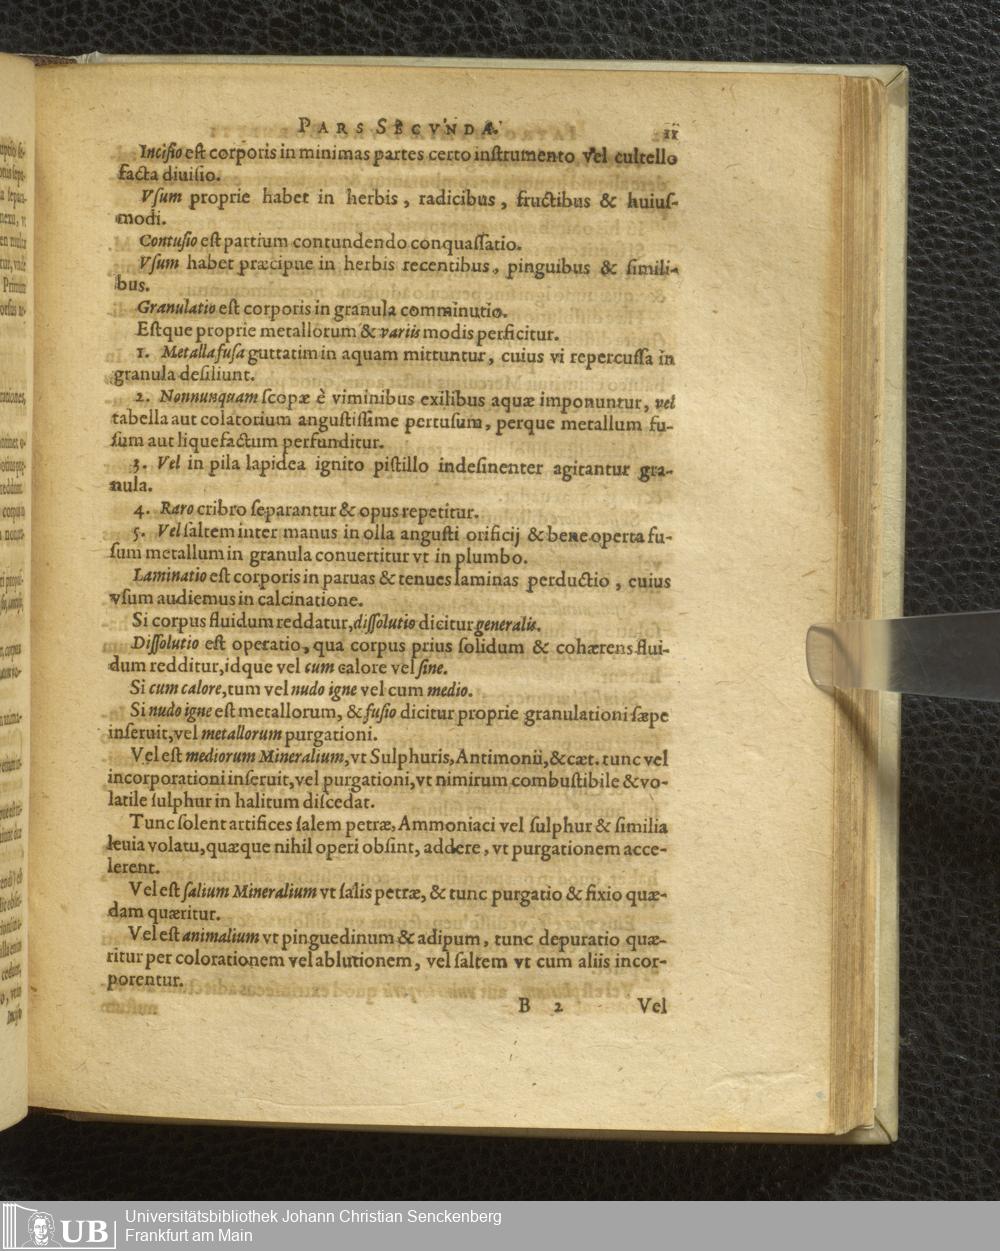 PARS SECVNDA. 11
Incisio est corporis in minimas partes certo instrumento vel cultello
facta diuisio.
Vsum proprie habet in herbis, radicibus, fructibus & huius-
modi.
Contusio est partium contundendo conquassatio.
Vsum habet præcipue in herbis recentibus, pinguibus & simili-
bus.
Granulatio est corporis in granula comminutio.
Estque proprie metallorum & variis modis perficitur.
1. Metalla fusa guttatim in aquam mittuntur, cuius vi repercussa in
granula desiliunt.
2. Nonnunquam scopæ è viminibus exilibus aquæ imponuntur, vel
tabella aut colatorium angustissime pertusum, perque metallum fu-
sum aut liquefactum perfunditur.
3. Vel in pila lapidea ignito pistillo indesinenter agitantur gra-
nula.
4. Raro cribro separantur & opus repetitur.
5. Vel saltem inter manus in olla angusti orificij & bene operta fu-
sum metallum in granula conuertitur vt in plumbo.
Laminatio est corporis in paruas & tenues laminas perductio, cuius
vsum audiemus in calcinatione.
Si corpus fluidum reddatur, dissolutio dicitur generalis.
Dissolutio est operatio, qua corpus prius solidum & cohærens flui-
dum redditur, idque vel cum calore vel sine.
Si cum calore, tum vel nudo igne vel cum medio.
Si nudo igne est metallorum, & fusio dicitur proprie granulationi sæpe
inseruit, vel metallorum purgationi.
Vel est mediorum Mineralium, vt Sulphuris, Antimonii, &cæt. tunc vel
incorporationi inseruit, vel purgationi, vt nimirum combustibile & vo-
latile sulphur in halitum discedat.
Tunc solent artifices salem petræ, Ammoniaci vel sulphur & similia
leuia volatu, quæque nihil operi obsint, addere, vt purgationem acce-
lerent.
Vel est salium Mineralium vt salis petræ, & tunc purgatio & fixio quæ-
dam quæritur.
Vel est animalium vt pinguedinum & adipum, tunc depuratio quæ-
ritur per colorationem vel ablutionem, vel saltem vt cum aliis incor-
porentur.
B 2 Vel
UB
Universitätsbibliothek Johann Christian Senckenberg
Frankfurt am Main